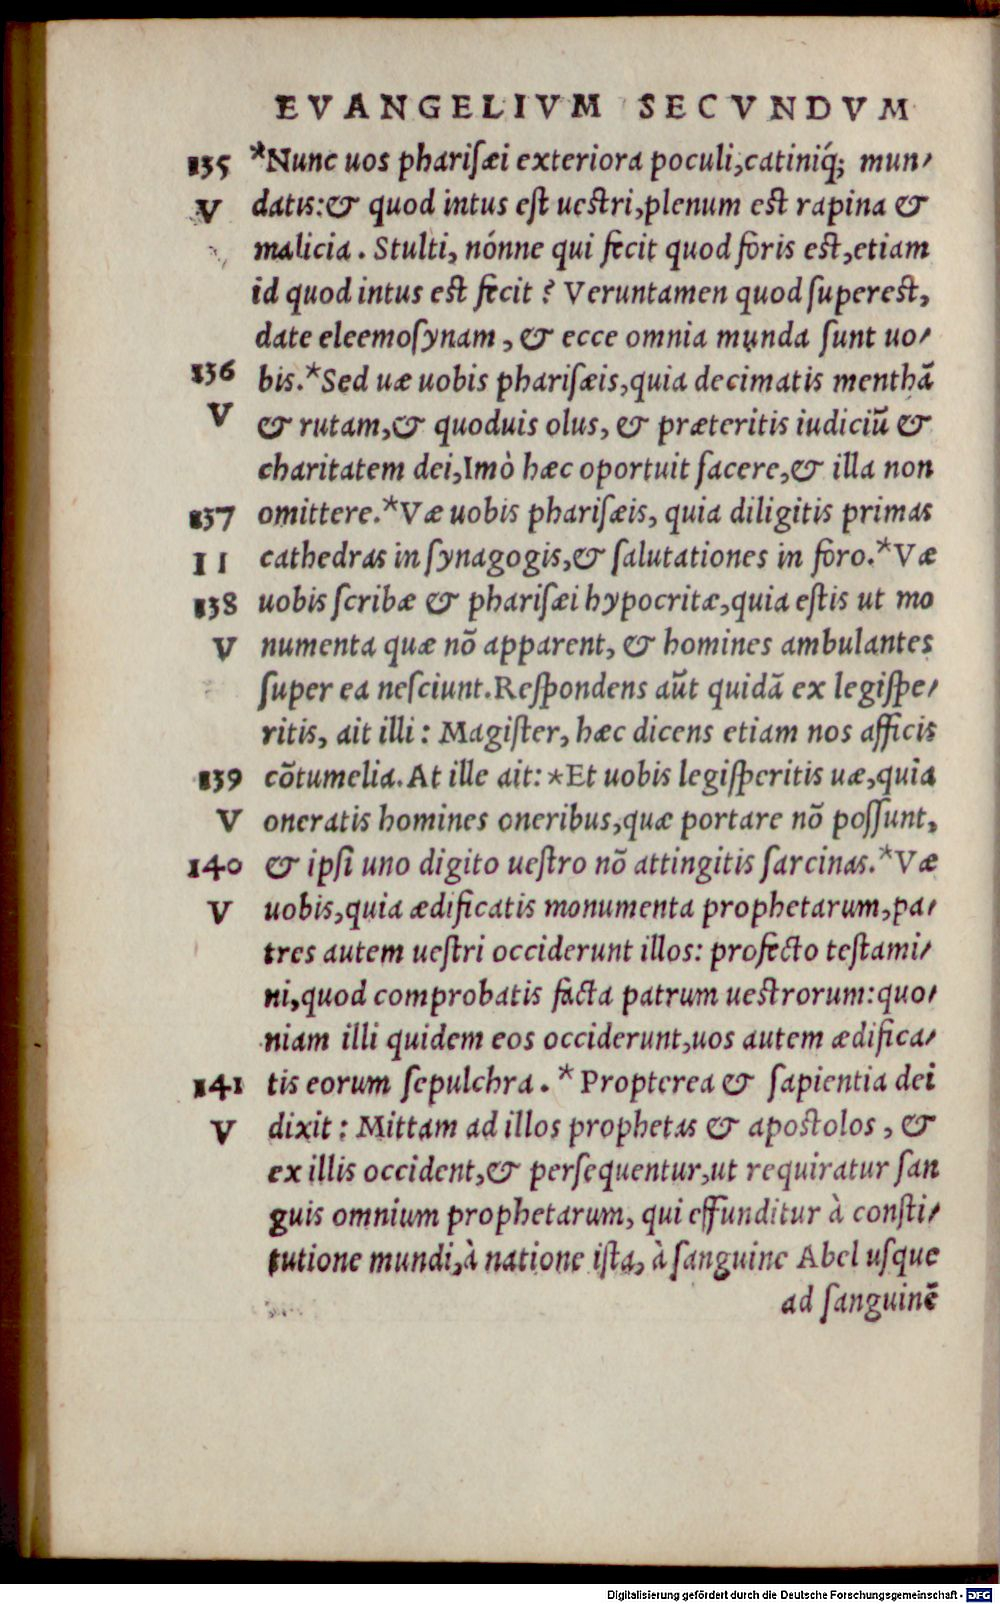 EVANGELIVM SECVNDVM
135 *Nunc uos phariſæi exteriora poculi, catiniq́; mun-
V datis: & quod intus eſt ueſtri, plenum eſt rapina &
malicia. Stulti, nónne qui fecit quod foris eſt, etiam
id quod intus eſt fecit? Veruntamen quod ſupereſt,
date eleemoſynam, & ecce omnia munda ſunt uo-
136 bis. *Sed uæ uobis phariſæis, quia decimatis menthã
V & rutam, & quoduis olus, & præteritis iudiciũ &
charitatem dei, Imò hæc oportuit facere, & illa non
137 omittere. *Væ uobis phariſæis, quia diligitis primas
II cathedras in ſynagogis, & ſalutationes in foro. *Væ
138 uobis ſcribæ & phariſæi hypocritæ, quia eſtis ut mo
V numenta quæ nõ apparent, & homines ambulantes
ſuper ea neſciunt. Reſpondens aũt quidã ex legiſpe-
ritis, ait illi: Magiſter, hæc dicens etiam nos afficis
139 cõtumelia. At ille ait: *Et uobis legiſperitis uæ, quia
V oneratis homines oneribus, quæ portare nõ poſſunt,
140 & ipſi uno digito ueſtro nõ attingitis ſarcinas. *Væ
V uobis, quia ædificatis monumenta prophetarum, pa-
tres autem ueſtri occiderunt illos: profecto teſtami-
ni, quod comprobatis facta patrum ueſtrorum: quo-
niam illi quidem eos occiderunt, uos autem ædifica-
141 tis eorum ſepulchra. * Propterea & ſapientia dei
V dixit: Mittam ad illos prophetas & apoſtolos, &
ex illis occident, & perſequentur, ut requiratur ſan
guis omnium prophetarum, qui effunditur à conſti-
tutione mundi, à natione iſta, à ſanguine Abel uſque
ad ſanguinẽ
Digitalisierung gefördert durch die Deutsche Forschungsgemeinschaft - DFG